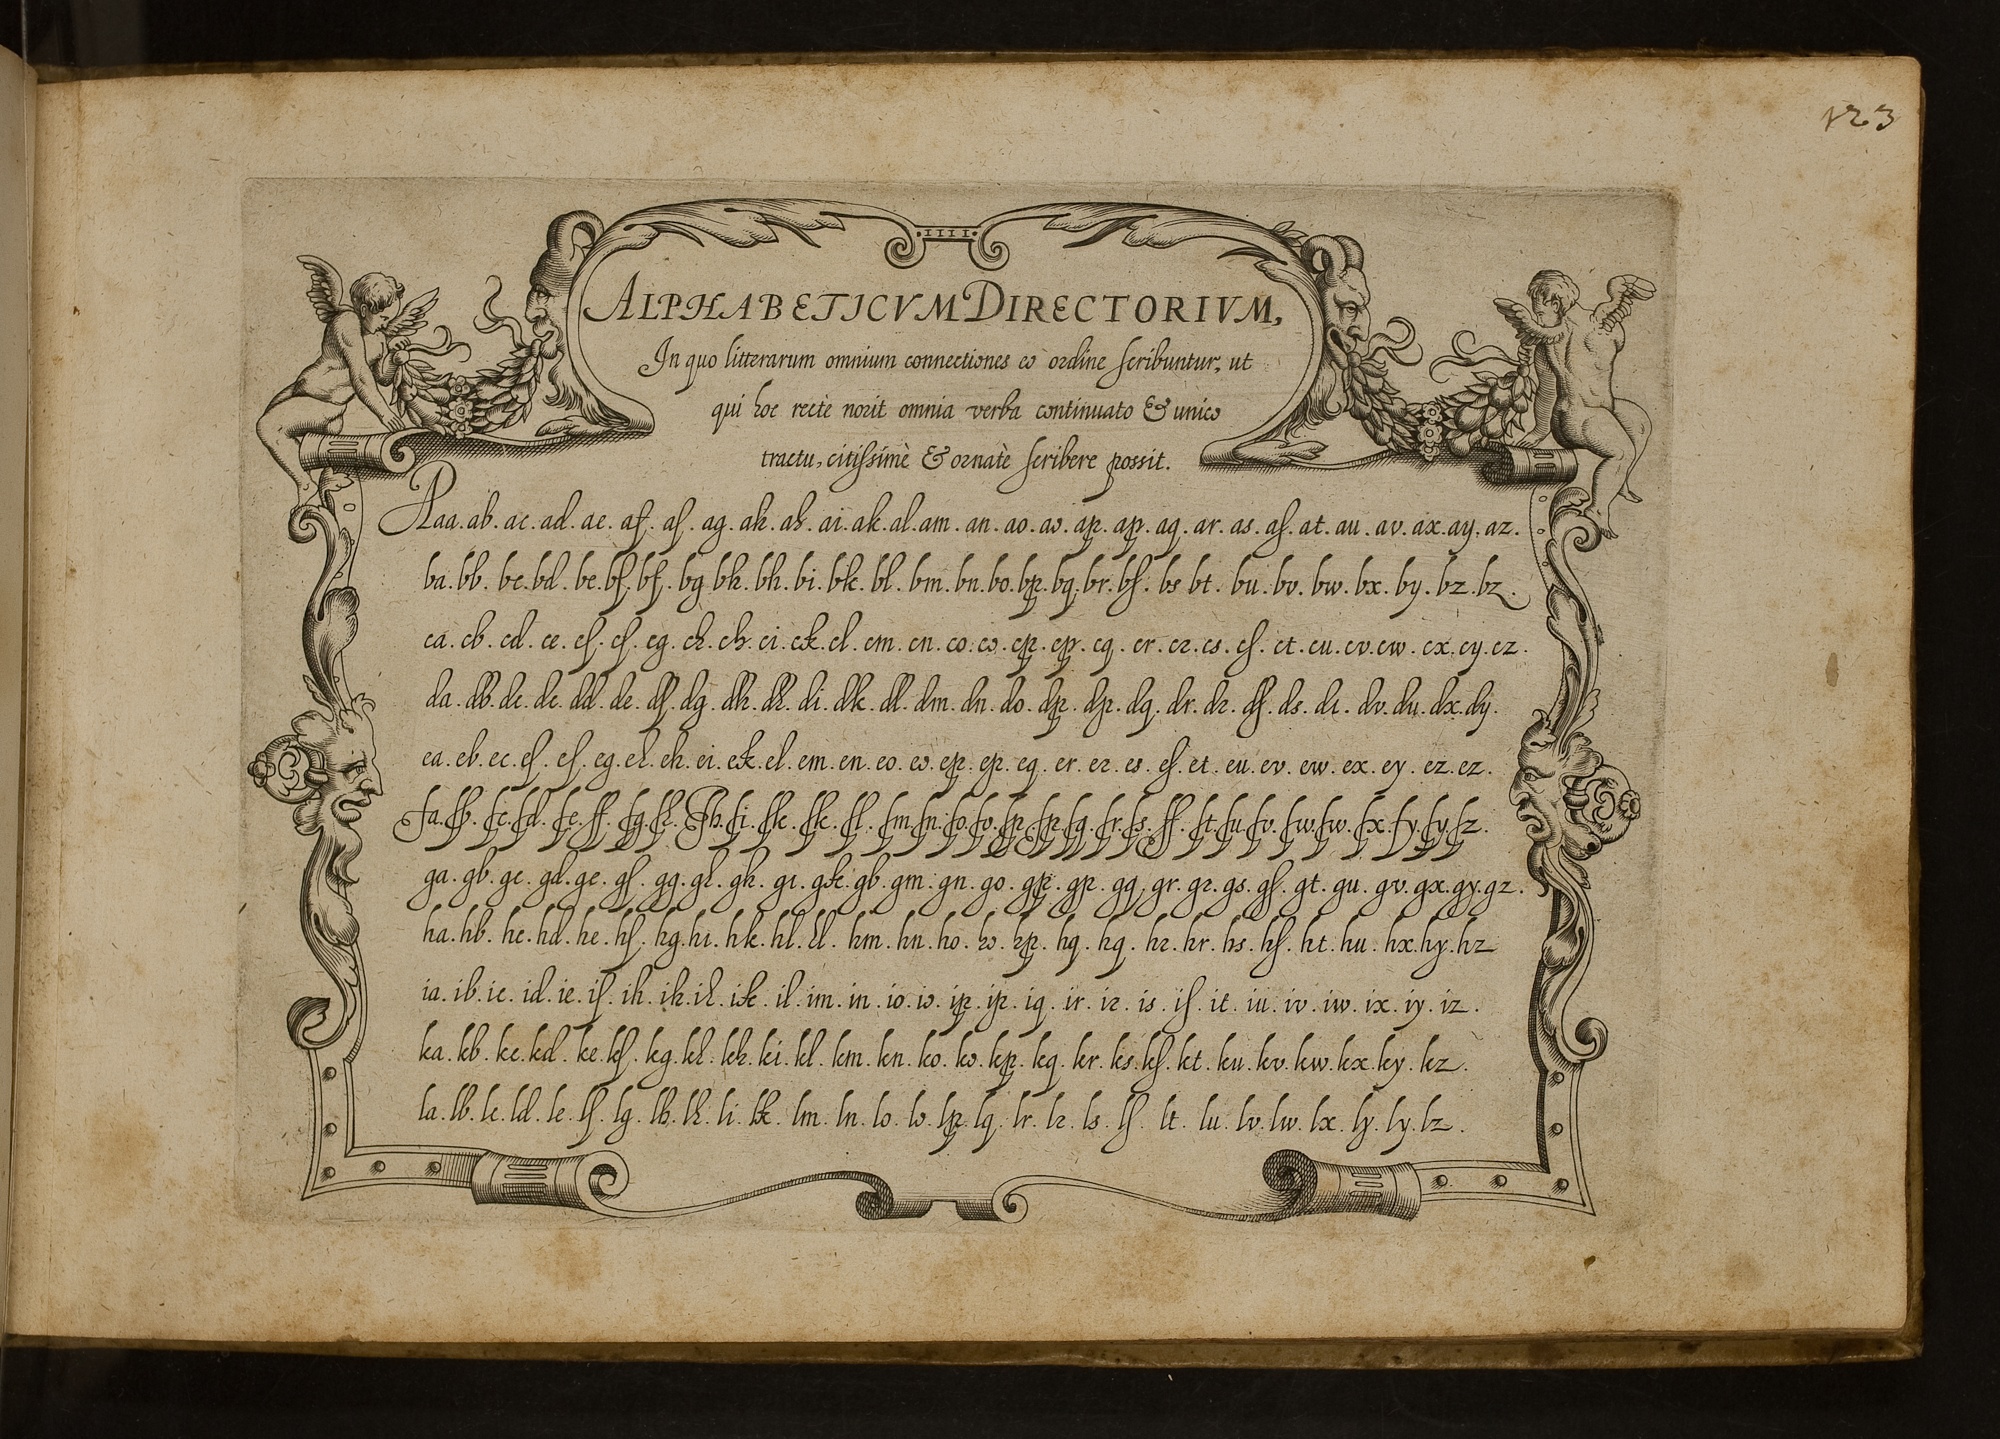 123
ALPHABETICVM DIRECTORIVM,
In quo litterarum omnium connectiones eo ordine scribuntur, ut
qui hoc rectè norit omnia verba continuato & unico
tractu, citissimè & ornatè scribere possit.
Aaa. ab. ac. ad. ae. af. af. ag. ah. ah. ai. ak. al. am. an. ao. ao. ap. ap. aq. ar. as. aſ. at. au. av. ax. ay. az.
ba. bb. bc. bd. be. bf. bf. bg. bh. bh. bi. bk. bl. bm. bn. bo. bp. bq. br. bſ. bs bt. bu. bv. bw. bx. by. bz. bz.
ca. cb. cd. ce. cf. cf. cg. ch. ch. ci. ck. cl. cm. cn. co: co. cp. cp. cq. cr. cr. cs. cſ. ct. cu. cv. cw. cx. cy. cz.
da. db. dc. dc. dd. de. df. dg. dh. dh. di. dk. dl. dm. dn. do. dp. dp. dq. dr. dr. dſ. ds. dt. dv. du. dx. dy.
ea. eb. ec. ef. ef. eg. eh. eh. ei. ek. el. em. en. eo. eo. ep. ep. eq. er. er. es. eſ. et. eu. ev. ew. ex. ey. ez. ez.
fa. fb. fc. fd. fe. ff. fg. fh. fh. fi. fk. fk. fl. fm. fn. fo. fo. fp. fp. fq. fr. fs. ff. ft. fu. fv. fw. fw. fx. fy. fy. fz.
ga. gb. gc. gd. ge. gf. gg. gh. gh. gi. gk. gb. gm. gn. go. gp. gp. gq. gr. gr. gs. gſ. gt. gu. gv. gx. gy. gz.
ha. hb. hc. hd. he. hf. hg. hi. hk. hl. hl. hm. hn. ho. ho. hp. hq. hq. hr. hr. hs. hſ. ht. hu. hx. hy. hz
ia. ib. ic. id. ie. if. ih. ih. ih. ik. il. im. in. io. io. ip. ip. iq. ir. ir. is. iſ. it. iu. iv. iw. ix. iy. iz.
ka. kb. kc. kd. ke. kf. kg. kh. kh. ki. kl. km. kn. ko. ko. kp. kq. kr. ks. kſ. kt. ku. kv. kw. kx. ky. kz.
la. lb. lc. ld. le. lf. lg. lh. lh. li. lk. lm. ln. lo. lo. lp. lq. lr. lr. ls. lſ. lt. lu. lv. lw. lx. ly. ly. lz.